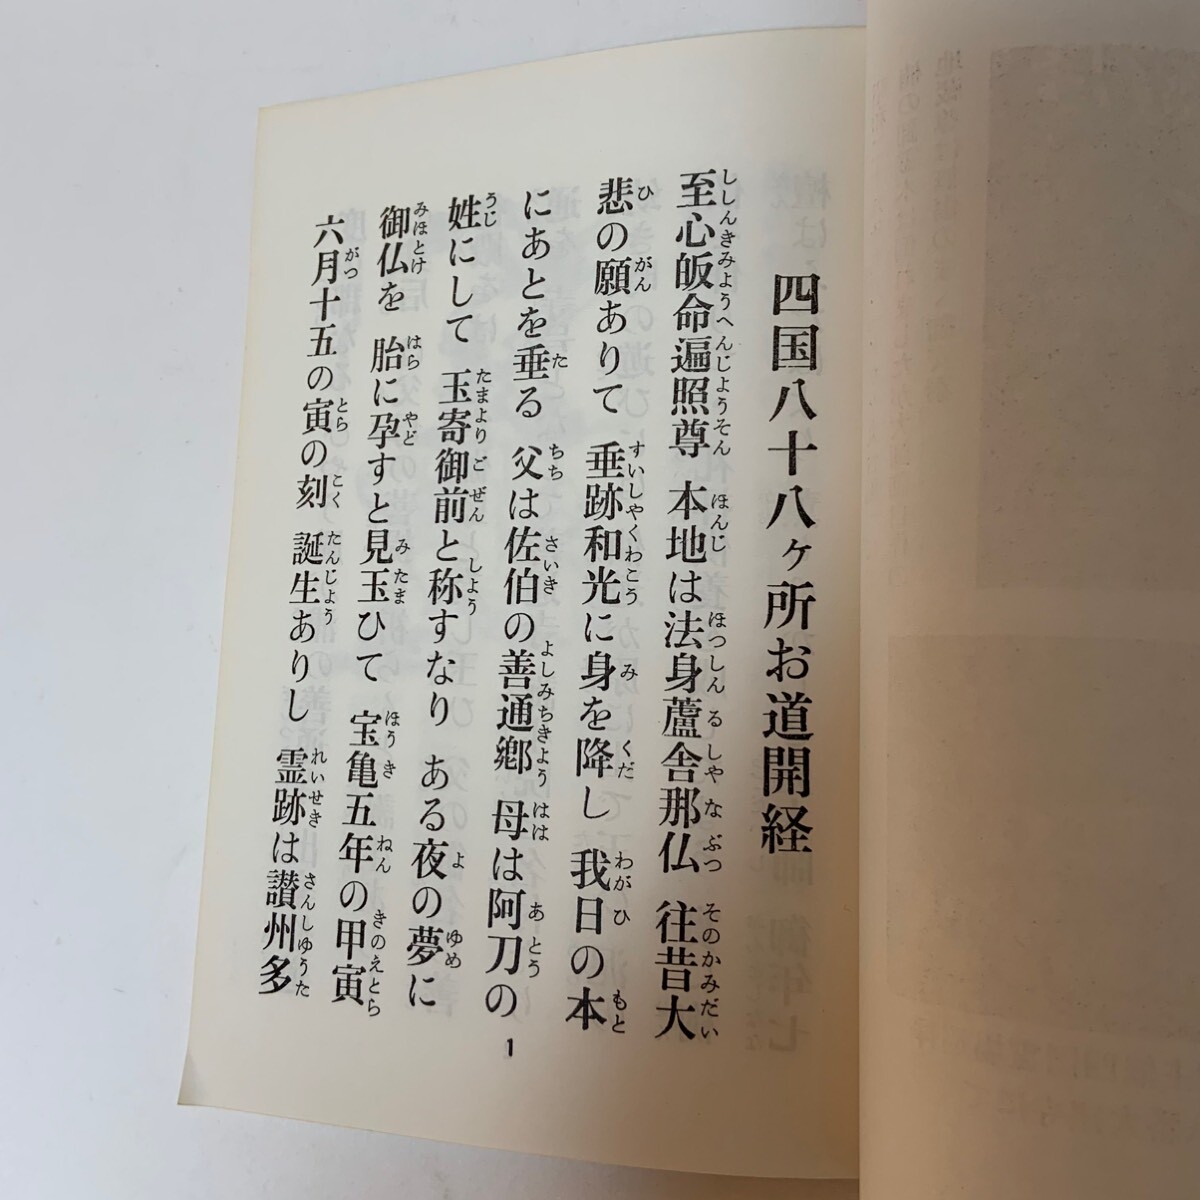 四国八十八ヶ所お道開経
至心皈命遍照尊 本地は法身蘆舎那仏 往昔大
悲の願ありて 垂跡和光に身を降し 我日の本
にあとを垂る 父は佐伯の善通郷 母は阿刀の
姓にして 玉寄御前と称すなり ある夜の夢に
御仏を 胎に孕すと見玉ひて 宝亀五年の甲寅
六月十五の寅の刻 誕生ありし 霊跡は讃州多
1